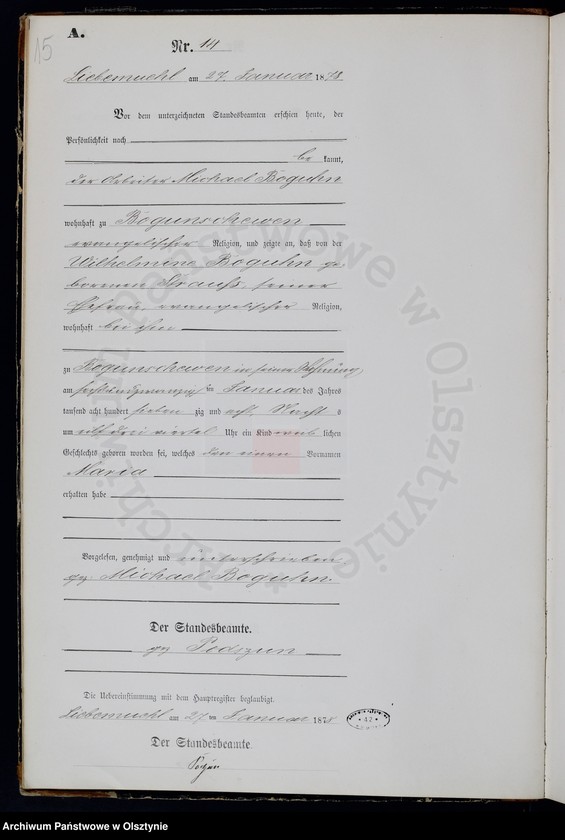 15
A.
Nr. 14
Liebemuehl am 27. Januar 1878.
Vor dem unterzeichneten Standesbeamten erschien heute, der
Persönlichkeit nach
be kannt,
der Arbeiter Michael Boguhn
wohnhaft zu Bogunschewen
evangelischer Religion, und zeigte an, daß von der
Wilhelmine Boguhn ge-
borenen Strauss, seiner
Ehefrau, evangelischer Religion,
wohnhaft bei ihm
zu Bogunschewen in seiner Wohnung
am sechsundzwanzigsten Januar des Jahres
tausend acht hundert sieben zig und acht Nachts
um elf drei viertel Uhr ein Kind weib lichen
Geschlechts geboren worden sei, welches den einen Vornamen
Maria
erhalten habe
Vorgelesen, genehmigt und unterschrieben
gez. Michael Boguhn.
Der Standesbeamte.
gez.
Die Uebereinstimmung mit dem Hauptregister beglaubigt.
Liebemuehl am 27 ten Januar 1878.
Der Standesbeamte.
47
Archiwum Państwowe w Olsztynie
Archiwum Państwowe w Olsztynie